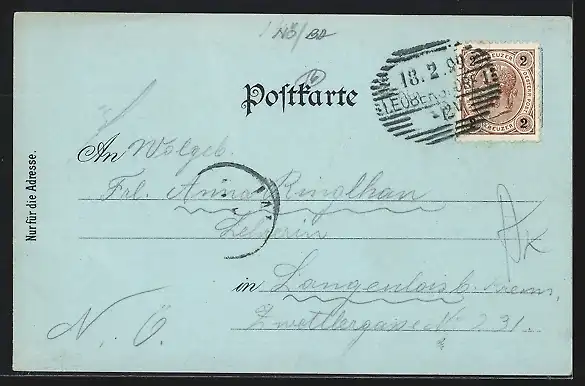 Postkarte
2 KREUZER 2
18.2.99
LEOBERSDORF 1
An Wolgeb.
Frl. Anna Ringlhan
Lehrerin
in Langenlois b. Krems,
Zwettlergasse No 231.
N. Ö.
Nur für die Adresse.